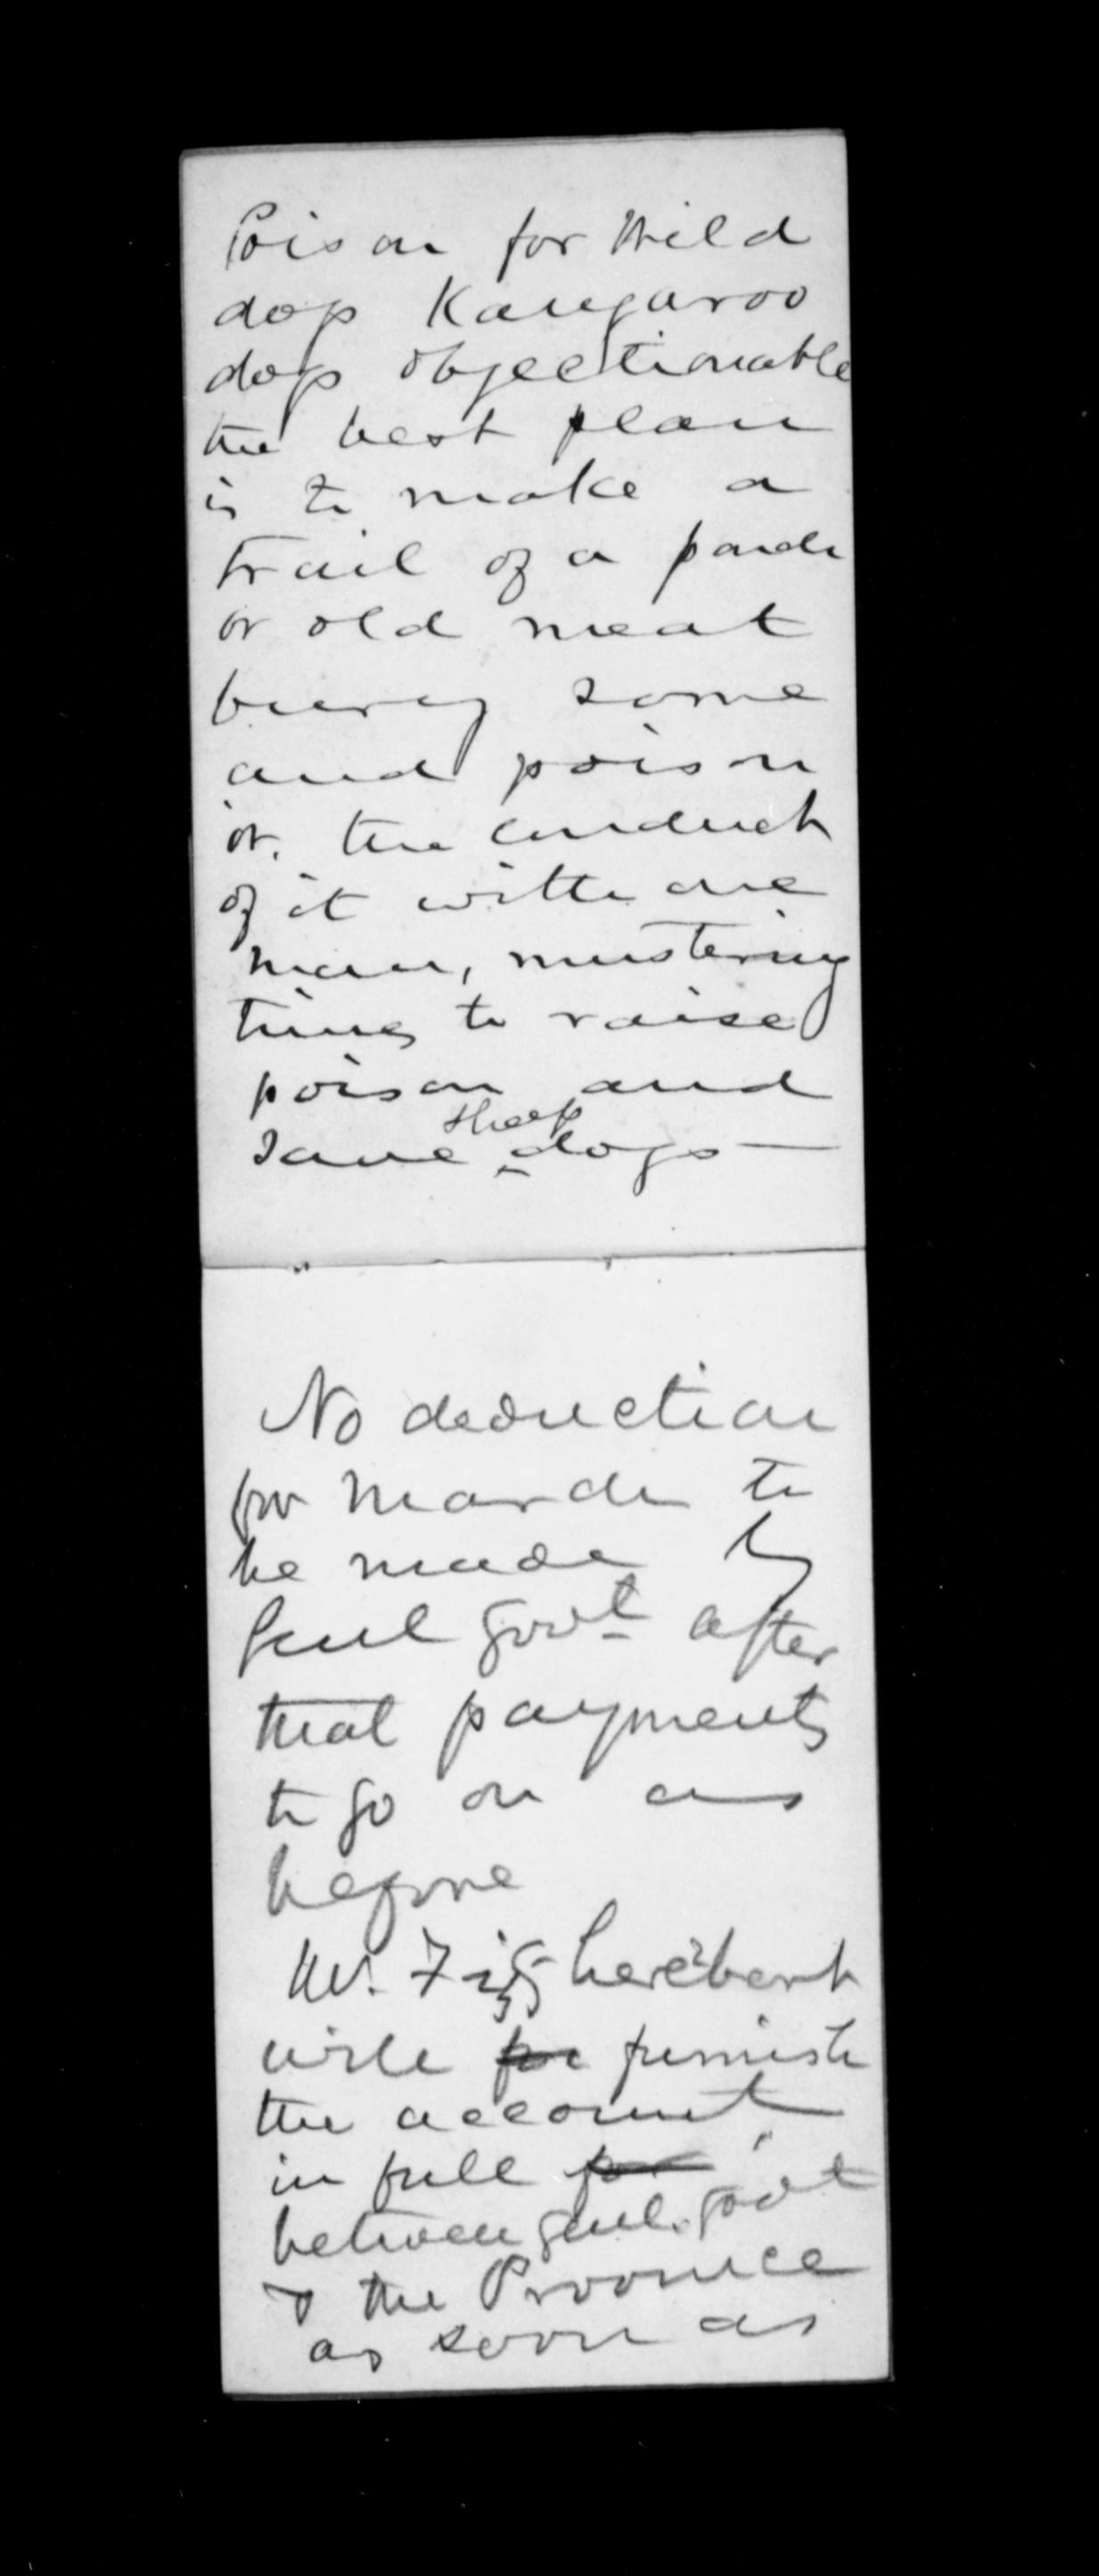 Poison for Wild
dogs Kangaroo
dogs objectionable
the best plan
is to make a
trail of a
or old meat
bury some
and poison
or. the conduct
of it with one
man, mustering
times to raise
poison and
save sheep dogs —
No deduction
for March to
be made by
Genl Govt after
that payments
to go on as
before
Mr. Fitzherbert
will for furnish
the account
in full for
between Genl. Govt
& the Province
as soon as